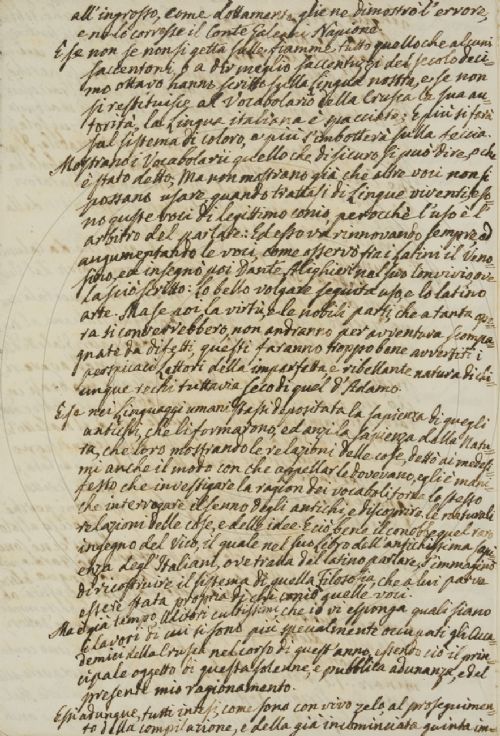 all'ingrosso, come dottamente glie ne dimostrò l'errore,
e no lo corresse il Conte Galeani Napione.
E se non se non si getta sulle fiamme tutto quello che alcuni
saccentoni, o a dir meglio saccentuzzi del secolo deci-
mo ottavo hanno scritto sulla lingua nostra, e se non
si restituisce al Vocabolario della Crusca la sua au-
torità, la lingua italiana è spacciata; E più si farà
sul sistema di coloro, e più s'imbotterà sulla feccia.
Mostrano i Vocabolarii quello che di sicuro si può dire, o che
è stato detto, Ma non mostrano già che altre voci non si
possano usare, quando trattasi di lingue viventi, e so-
no queste voci di legittimo conio, perocchè l'uso è l'
arbitro del parlare: Ed esso va rinnovando sempre ed
augumentando le voci, come osservò fra i Latini il Veno-
sino, ed insegnò poi Dante Alighieri nel suo Convivio ove
lasciò scritto: lo bello volgare seguita uso, e lo latino
arte. Ma se poi la virtù, e le nobili parti, che a tanta ope-
ra si converrebbero, non andranno per avventura scompa-
gnate da difetti, questi faranno troppo bene avvertiti i
perspicaci lettori della imperfetta e ribellante natura di chi-
unque rechi tuttavia seco di quel d'Adamo.
E se nei linguaggi umani stassi depositata la sapienza di quegli
antichi, che li formarono, ed anzi la sapienza della Natu-
ra, che loro mostrando le relazioni delle cose, dettò ai medesi-
mi anche il modo con che appellar le dovevano, egli è mani-
festo che investigare la ragion dei vocaboli torna lo stesso
che interrogare il senno degli antichi, e discoprire le naturali
relazioni delle cose, e delle idee. E ciò bene il conobbe quel raro
ingegno del Vico, il quale nel suo libro dell'antichissima sapi-
enza degl'Italiani, ove tratta del latino parlare, s'immaginò
di ricostruire il sistema di quella filosofia, che a lui parve
essere stata propria di chi coniò quelle voci.
Ma è già tempo Uditori cultissimi che io vi esponga quali siano
i lavori di cui si sono più specialmente occupati gli Acca-
demici della Crusca nel corso di quest'anno, essendo ciò il prin-
cipale oggetto di questa solenne, e pubblica adunanza, e del
presente mio ragionamento.
Essi adunque, tutti intesi, come sono con vivo zelo al proseguimen-
to della compilazione, e della già incominciata quinta im-